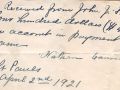 Received from John J. S
one hundred dollars ($
account in payment
Nathan
St Pauls
April 2nd 1921